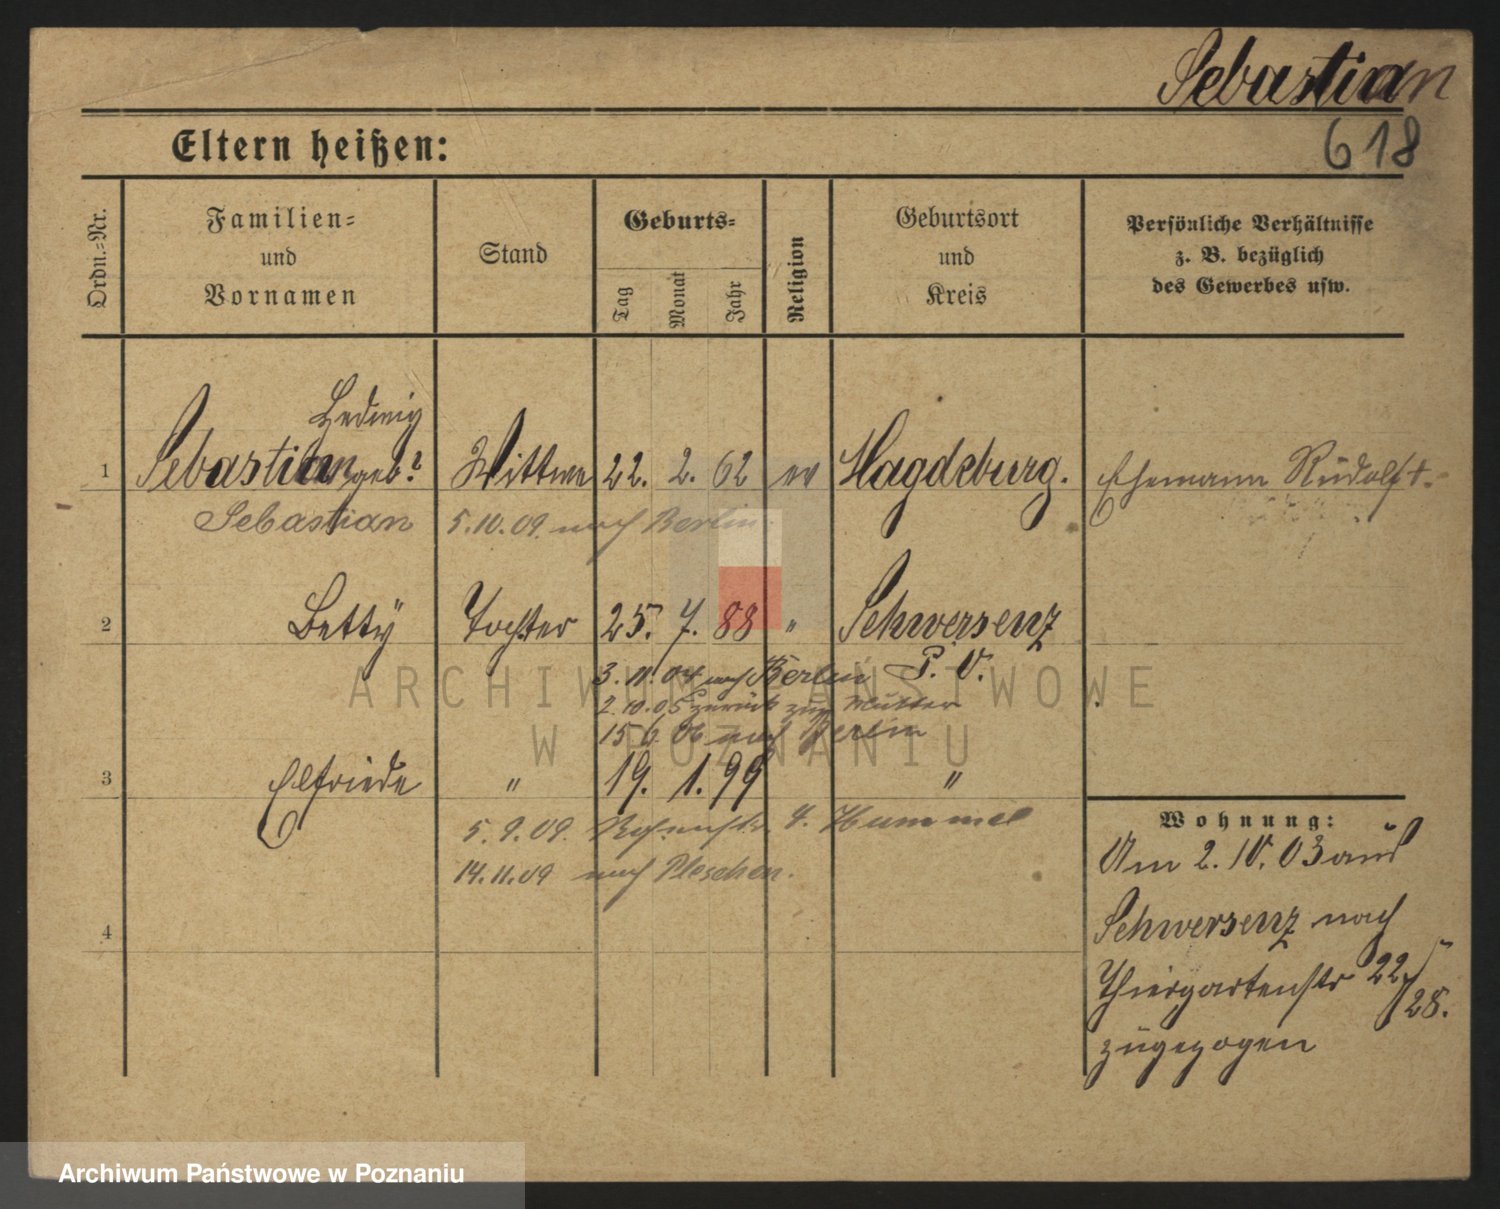 Sebastian
618
Eltern heißen:
Ordn.-Nr.
Familien-
und
Vornamen
Stand
Geburts-
Tag
Monat
Jahr
Religion
Geburtsort
und
Kreis
Persönliche Verhältnisse
z. B. bezüglich
des Gewerbes usw.
Hedwig
1 Sebastian geb? Wittwe 22. 2. 62 ev Magdeburg. Ehemann Rudolf †.
Sebastian 5.10.09 nach Berlin.
2 Betty Tochter 25. 7. 88 " Schwersenz
3.11.04 nach Berlin P. O.
2.10.05 zurück zur Mutter
15.6.06 nach Berlin
3 Elfriede " 19. 1. 99 "
5.9.09 4. Hummel
14.11.09 nach Pleschen.
4
Wohnung:
Am 2. IV. 03 aus
Schwersenz nach
Thiergartenstr 22/
28.
zugezogen
ARCHIWUM PAŃSTWOWE
W POZNANIU
Archiwum Państwowe w Poznaniu